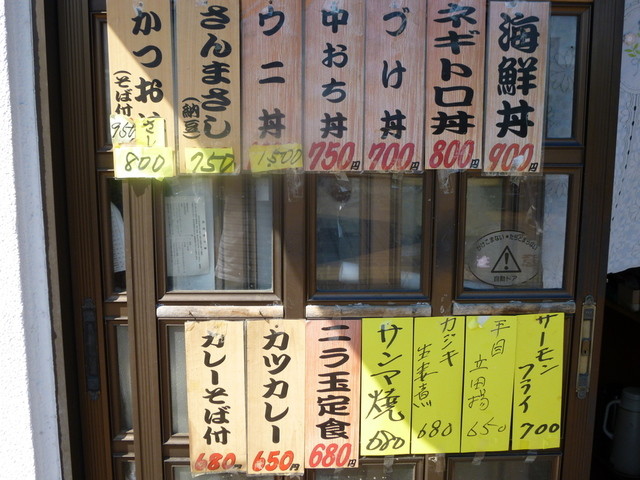 海鮮丼
900
ネギトロ丼
800円
づけ丼
700円
中おち丼
750円
ウニ丼
1,500
さんまさし
(納豆)
750
かつおさし
(そば付)
950
800
自動ドア
サーモンフライ
700
平目立田揚
650
カジキ生姜煮
680
サンマ焼
680
ニラ玉定食
680円
カツカレー
650円
カレーそば付
680円